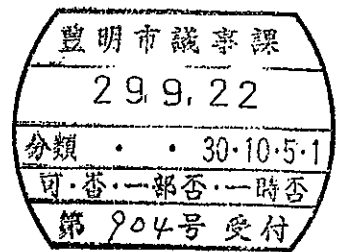 豊明市議事課
29.9.22
分類 ・ ・ 30・10・5・1
可・否・一部否・一時否
第 904号 受付